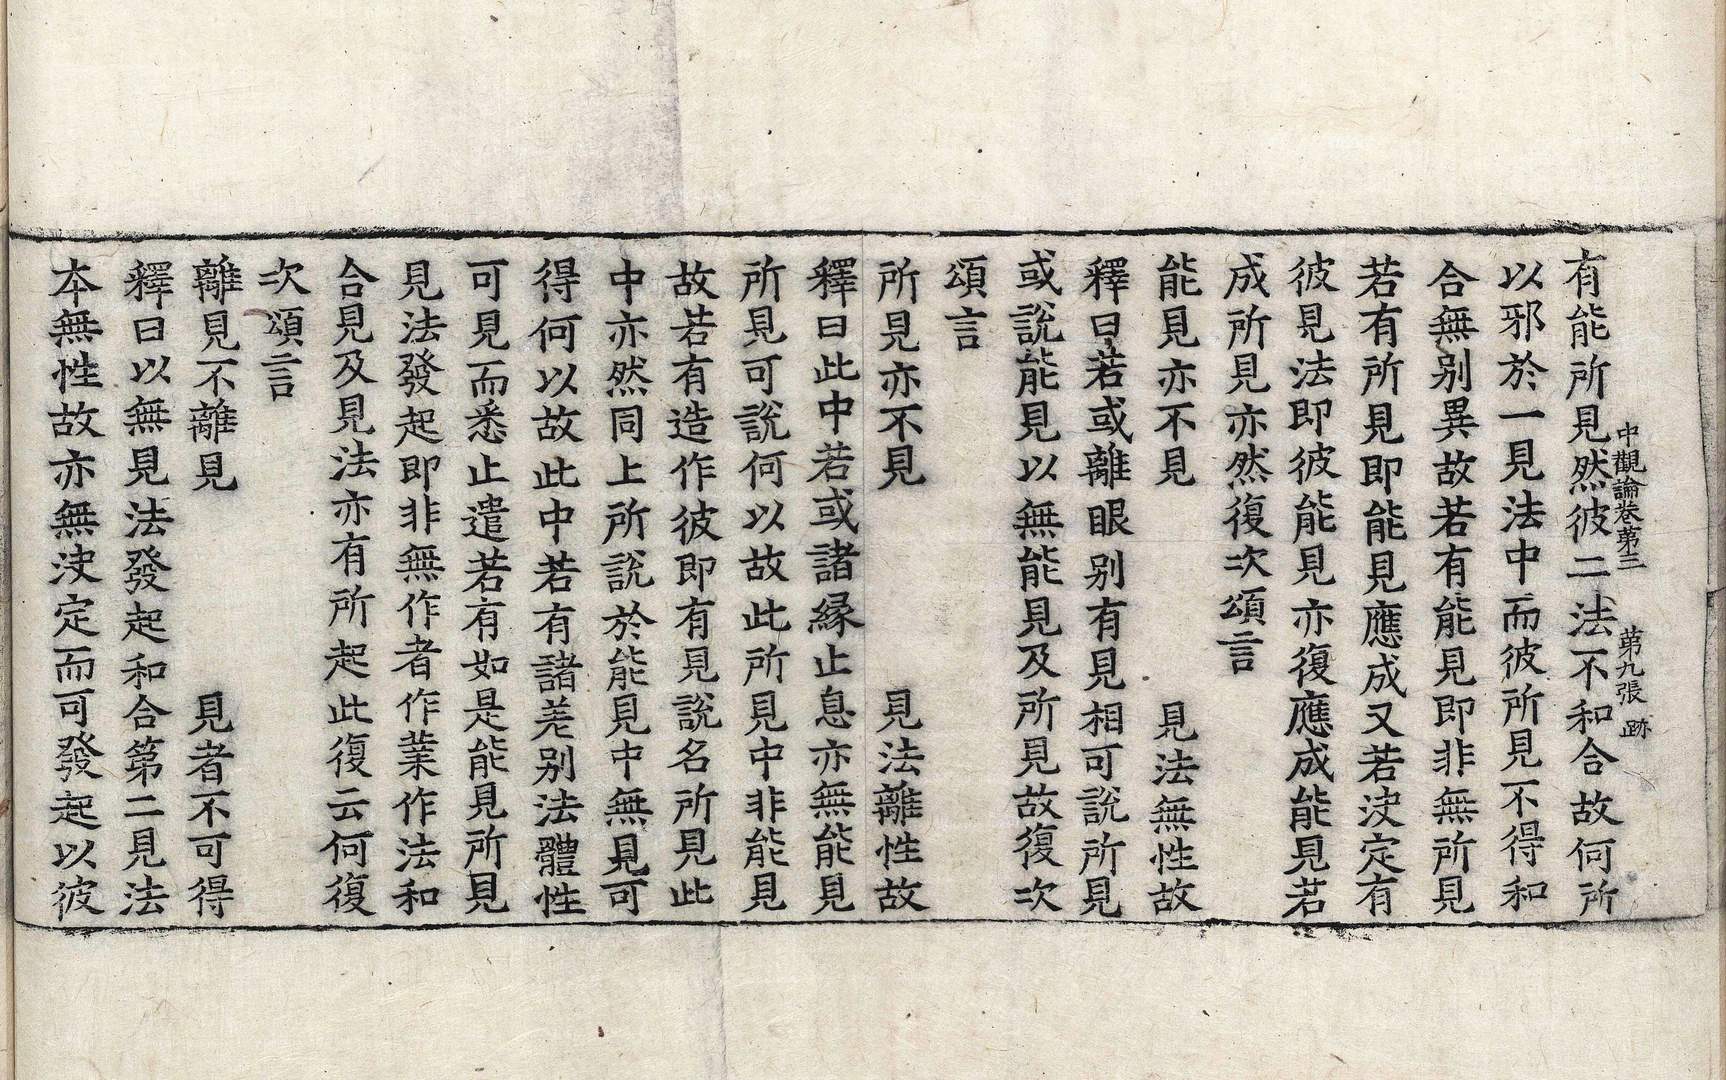 中觀論卷第三　第九張　跡
有能所見然彼二法不和合故何所
以邪於一見法中而彼所見不得和
合無别異故若有能見即非無所見
若有所見即能見應成又若決定有
彼見法即彼能見亦復應成能見若
成所見亦然復次頌言
能見亦不見　見法無性故
釋曰若或離眼别有見相可說所見
或說能見以無能見及所見故復次
頌言
所見亦不見　見法離性故
釋曰此中若或諸緣止息亦無能見
所見可說何以故此所見中非能見
故若有造作彼即有見說名所見此
中亦然同上所說於能見中無見可
得何以故此中若有諸差别法體性
可見而悉止遣若有如是能見所見
見法發起即非無作者作業作法和
合見及見法亦有所起此復云何復
次頌言
離見不離見　見者不可得
釋曰以無見法發起和合第二見法
本無性故亦無決定而可發起以彼